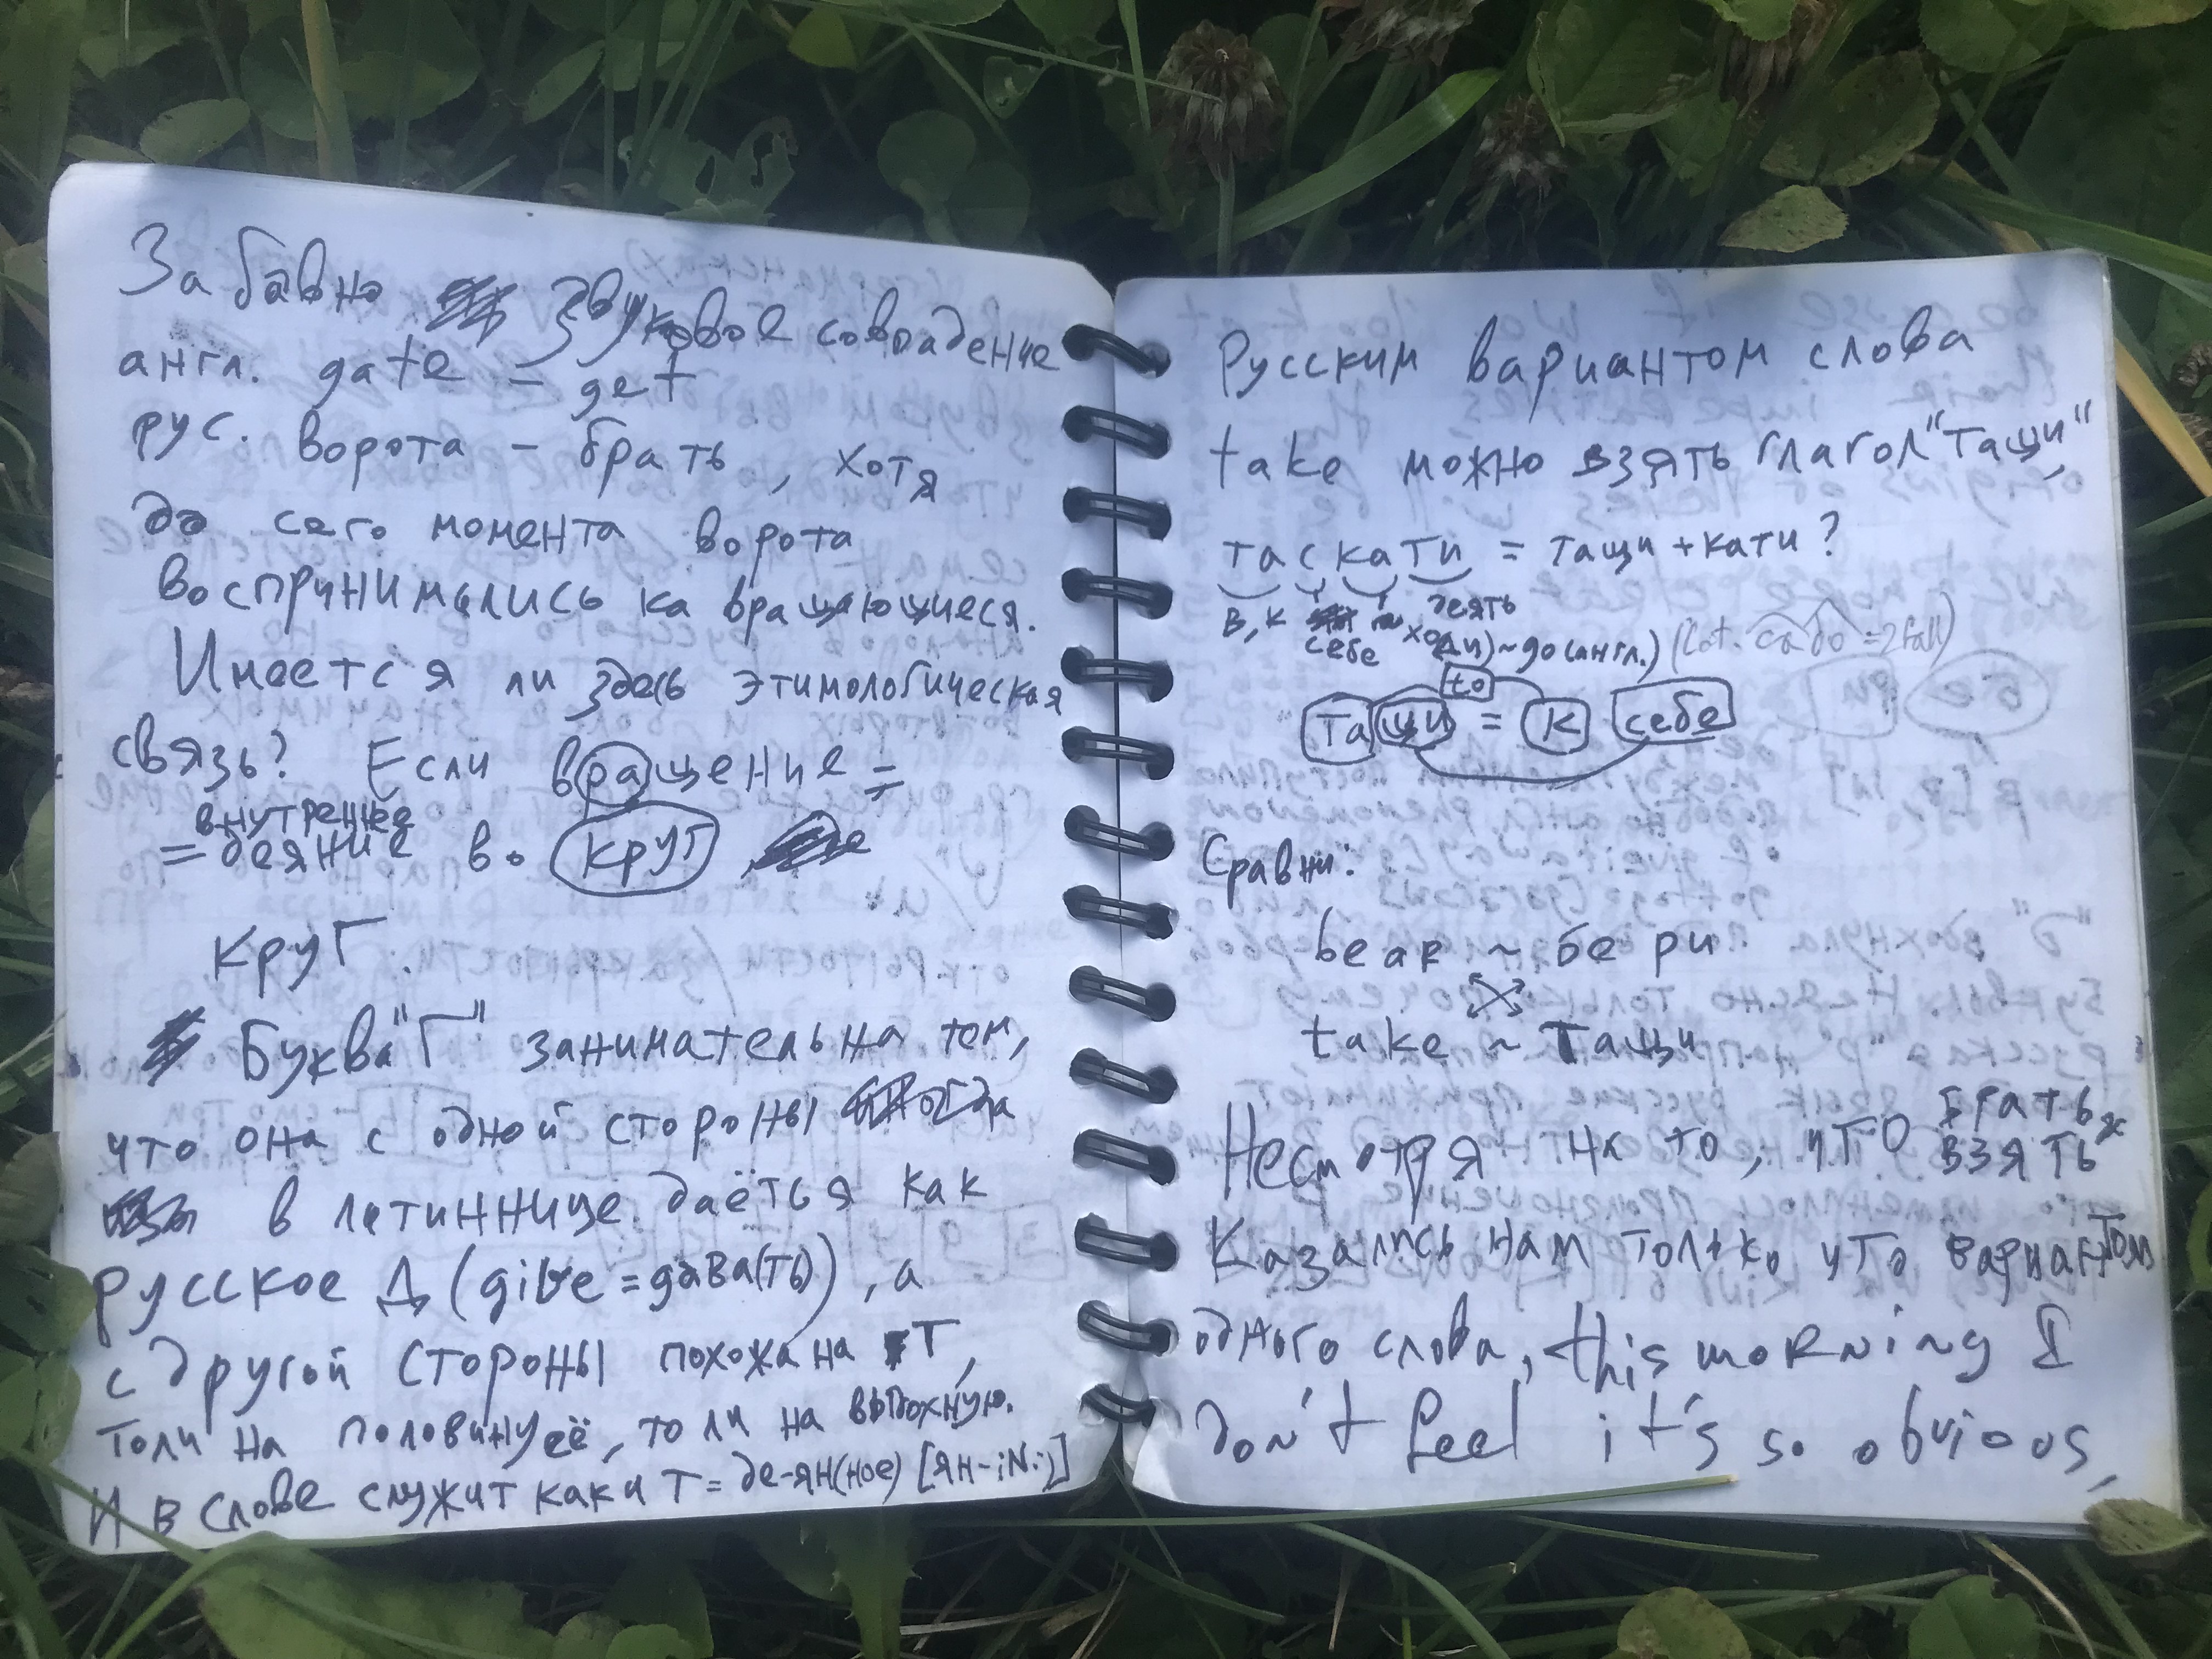 Забавно звуковое совпадение
англ. gate – get
рус. ворота – брать, хотя
до сего момента ворота
воспринимались ка вращающиеся.
Имеется ли здесь этимологическая
связь? Если вращение =
= внутреннее деяние в.
крут
круг.
Буква "Г" занимательна тем,
что она с одной стороны
в латиннице даётся как
русское Д (give = дава(ть)), а
с другой стороны похожа на Т
то ли на половину её, то ли на выдохную.
И в слове служит как и Т = де-ян(ное) [ян-iN:]
Русским вариантом слова
take можно взять глагол "тащи"
таскати = тащи + кати?
в, к себе ходи ~ до (англ.) (lat. cado = 2fall)
деять
to
Тащи = к себе
Сравни:
bear ~ бери
take ~ тащи
Несмотря на то, что брать
взять
казались нам только что вариантом
одного слова, this morning I
don't feel it's so obvious,